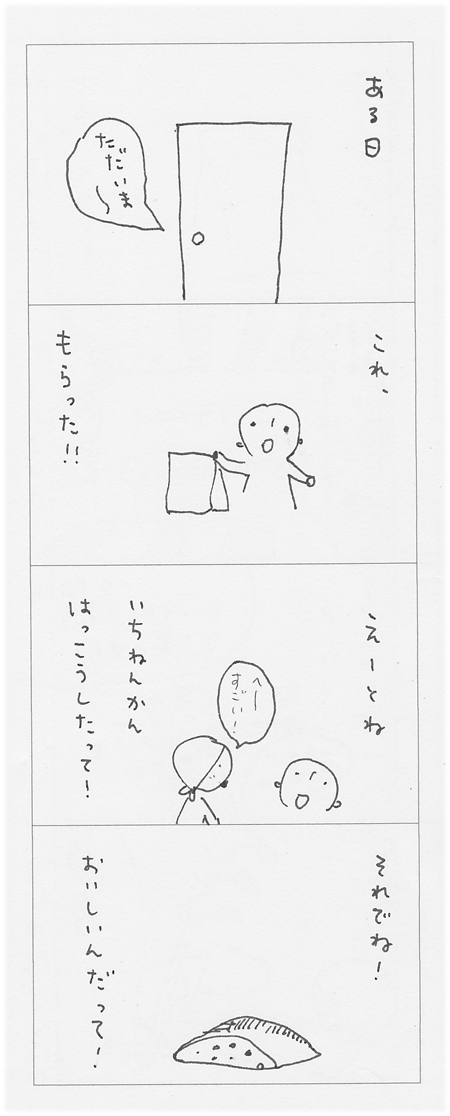 ある日
ただいま
これ、
もらった!!
えーとね
へー
すごい!
いちねんかん
はっこうしたって!
それでね!
おいしいんだって!